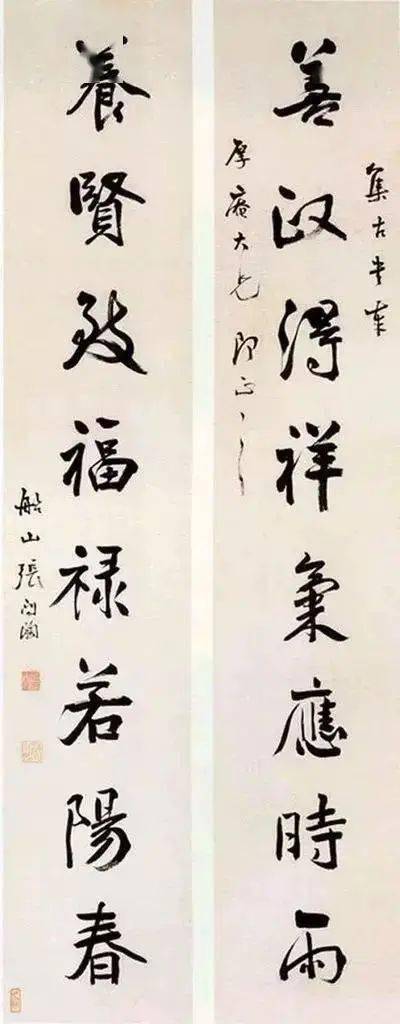 集古书奉
善政得祥氣應時雨
厚庵大兄 即正
養賢致福禄若陽春
船山張問陶